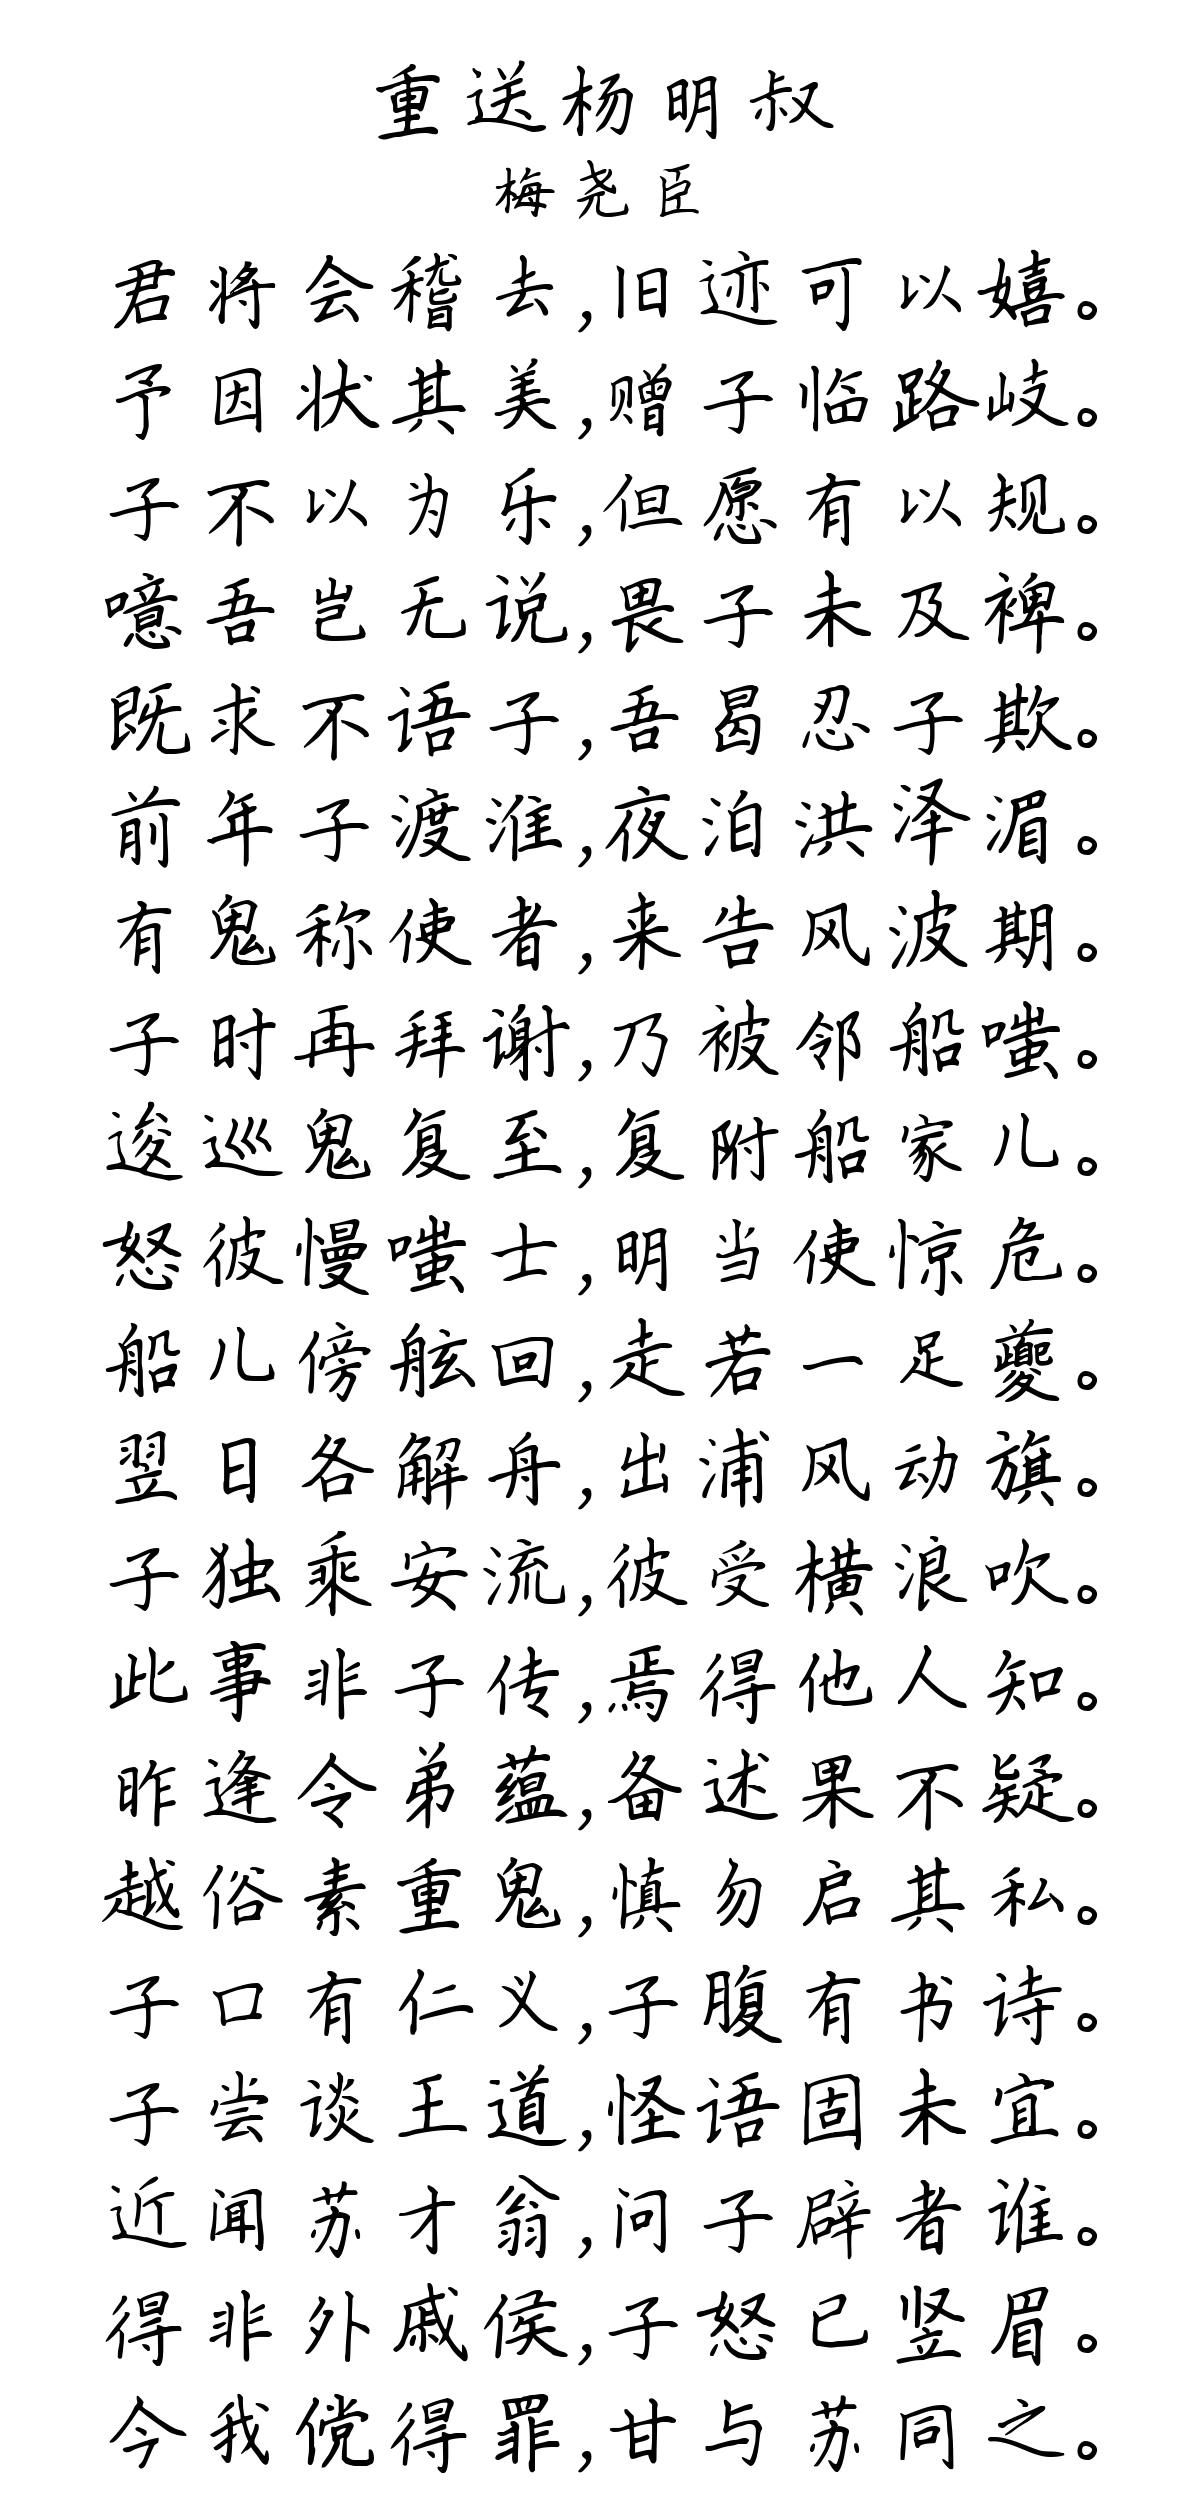 重送杨明叔
梅尧臣
君将会稽去，旧过可以嬉。
予因状其美，赠子忻路歧。
子不以为乐，但愿有以规。
噫吾岂无说，畏子未及裨。
既求不语子，吾曷忍子欺。
前年子渡淮，夜泊洪泽湄。
有鬼称使者，来告风波期。
子时再拜谢，乃被邻船嗤。
逡巡鬼复至，复附船家儿。
怒彼慢嗤士，明当使惊危。
船儿傍舷回，走若一足夔。
翌日各解舟，出浦风动旗。
子独乘安流，彼受横浪吹。
此事非子传，焉得他人知。
昨逢令弟蕴，备述果不疑。
越俗素重鬼，慎勿启其私。
子口有仁义，子腹有书诗。
子尝谈王道，怪语固未宜。
近闻苏才翁，问子辟者谁。
得非外戚侯，子怒已竖眉。
今我傥得罪，甘与苏同之。